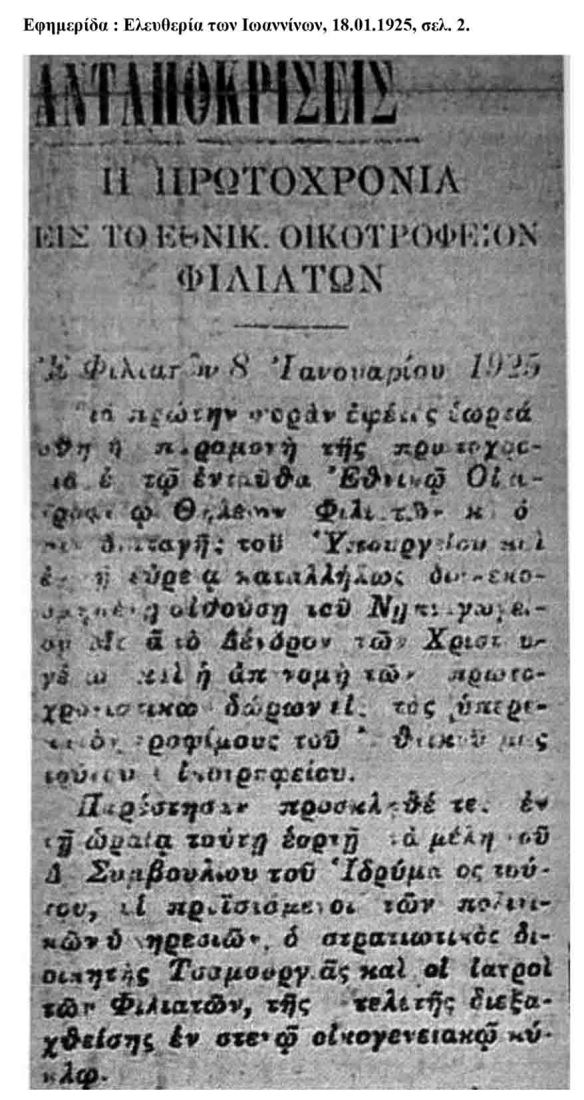 Εφημερίδα : Ελευθερία των Ιωαννίνων, 18.01.1925, σελ. 2.
ΑΝΤΑΠΟΚΡΙΣΕΙΣ
Η ΠΡΩΤΟΧΡΟΝΙΑ
ΕΙΣ ΤΟ ΕΘΝΙΚ. ΟΙΚΟΤΡΟΦΕΙΟΝ
ΦΙΛΙΑΤΩΝ
Φιλιατῶν 8 Ἰανουαρίου 1925
πρώτην φορὰν ἐφέτος ἑωρτά
σθη ἡ παραμονὴ τῆς πρωτοχρο-
τῷ ἐνταῦθα Ἐθνικῷ Οἰκο-
Θηλέων Φιλιατῶν
διαταγῆς τοῦ Ὑπουργείου καὶ
καταλλήλως διακεκο-
αἰθούσῃ τοῦ Νηπιαγωγεί-
τὸ Δένδρον τῶν Χριστου
καὶ ἡ ἀπονομὴ τῶν πρωτο-
χρονιατικων δώρων εἰς τοὺς ὑπερε-
τροφίμους τοῦ
τούτου οἰκοτροφείου.
Παρέστησαν προσκληθέντες ἐν
τῇ ὡραίᾳ ταύτῃ ἑορτῇ τὰ μέλη τοῦ
Δ Συμβουλίου τοῦ Ἱδρύματος τού-
του, οἱ προϊστάμενοι τῶν πολιτι-
κῶν ὑπηρεσιῶν, ὁ στρατιωτικὸς δι-
οικητὴς Τσαμουργκᾶς καὶ οἱ ἰατροὶ
τῶν Φιλιατῶν, τῆς τελετῆς διεξα-
χθείσης ἐν στενῷ οἰκογενειακῷ κύ-
κλῳ.